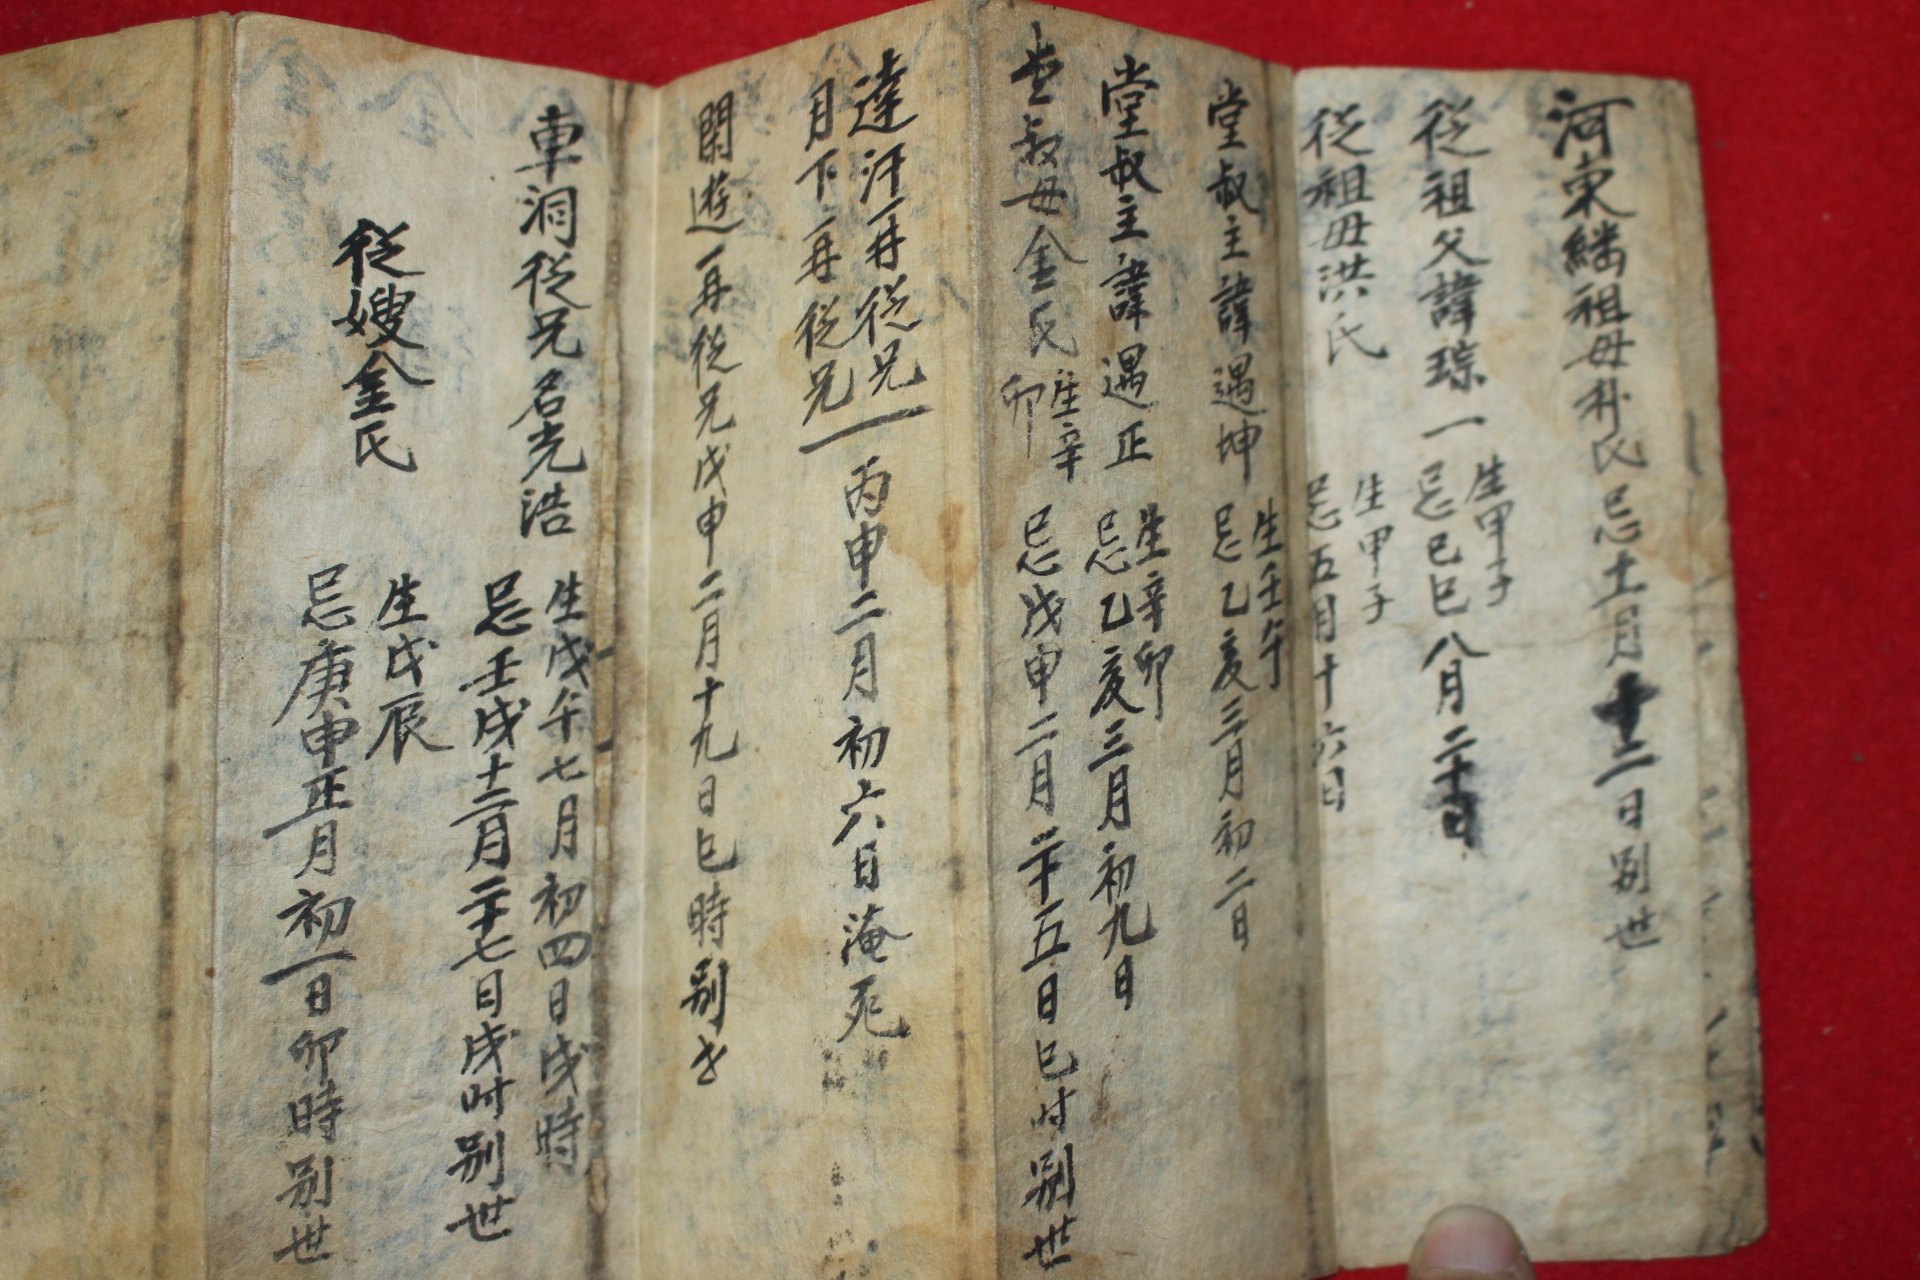 河東繼祖母朴氏忌十一月十二日別世
從祖父諱琮一 生甲子
忌己巳八月二十日
從祖母洪氏 生甲子
忌五月十六日
堂叔主諱遇坤 生壬午
忌乙亥三月初二日
堂叔主諱遇正 生辛卯
忌乙亥三月初九日
堂叔母金氏 生辛
卯
忌戊申二月二十五日巳时別世
達汗再從兄
月下再從兄
丙申二月初六日淹死
閑遊再從兄戊申二月十九日巳時別世
車洞從兄名光浩 生戊午七月初四日戌時
忌壬戌十二月二十七日戌时別世
從嫂金氏 生戊辰
忌庚申正月初一日卯時別世